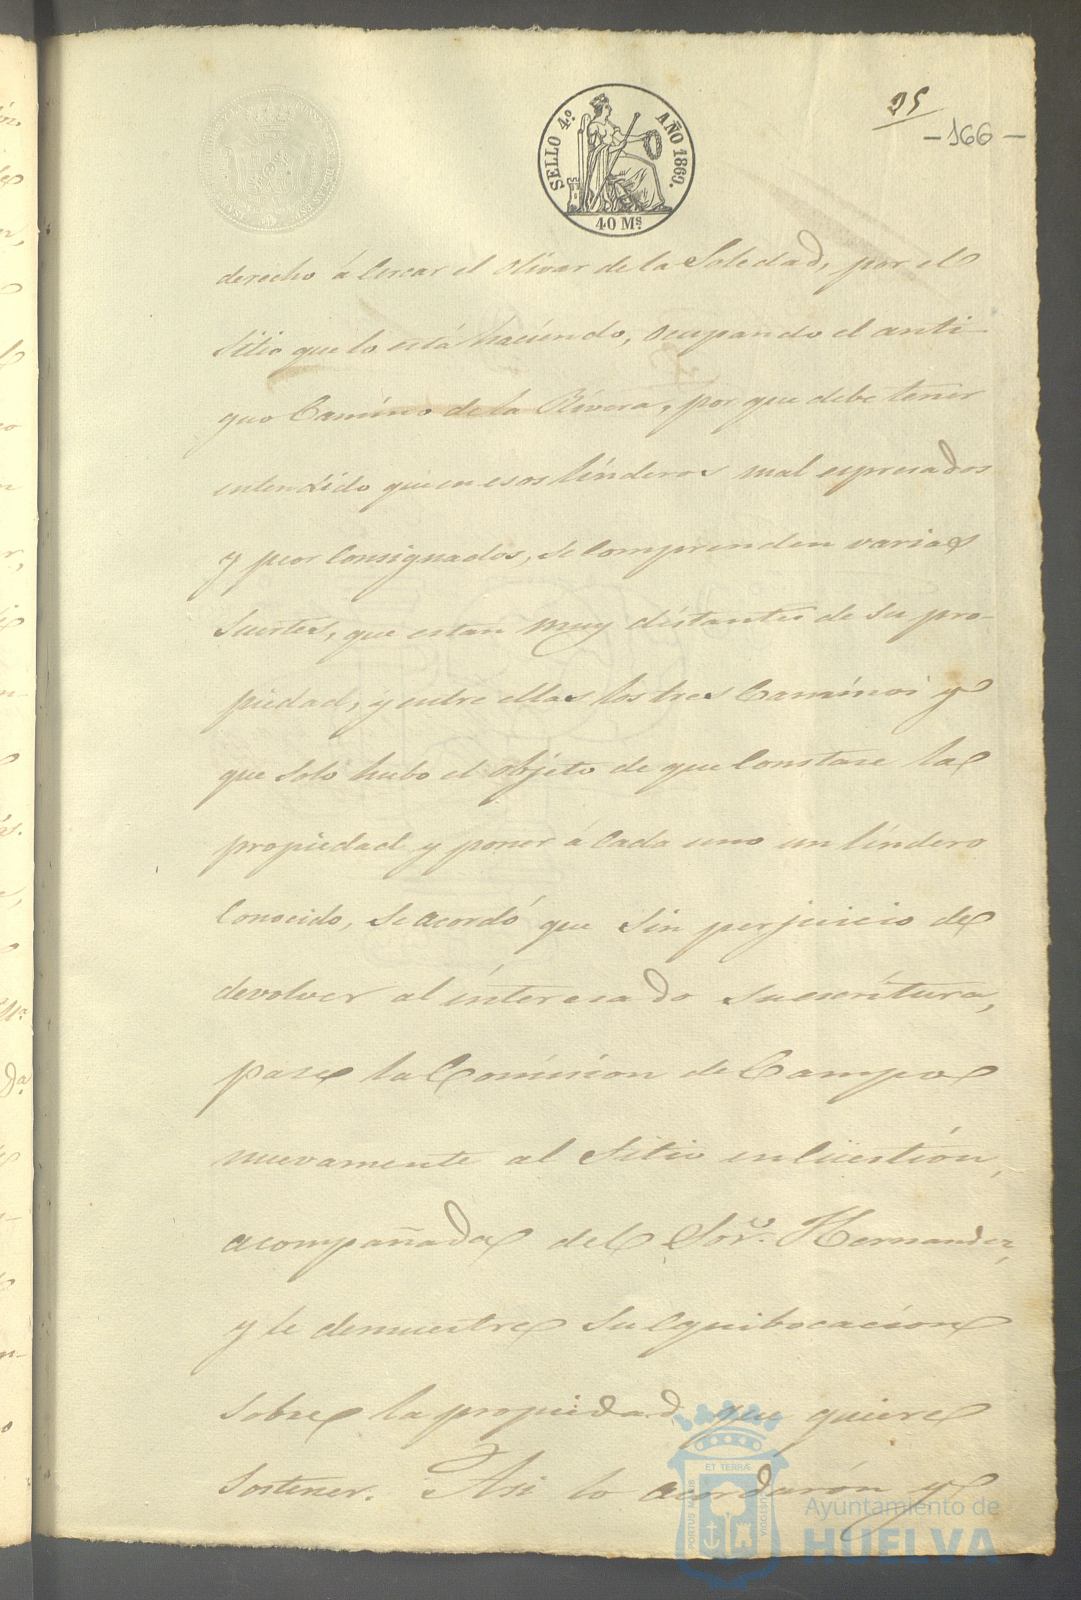 SELLO 4.º AÑO 1869.
40 Ms.
95
-166-
derecho á Cercar el Olivar de la Soledad, por el
Sitio que lo está haciendo, ocupando el anti-
guo Camino de la Rivera, por que debe tener
entendido que en esos linderos mal espresados
y peor Consignados, se Comprenden varias
Suertes, que estan muy distantes de su pro-
piedad, y entre ellas los tres Caminos y
que solo hubo el objeto de que Constase la
propiedad y poner á Cada uno un lindero
Conocido, se acordó que sin perjuicio de
devolver al interesado su escritura,
pase la Comision de Campo
nuevamente al Sitio en Cüestion,
acompañada del Sor. Hernandez,
y le demuestre su Equibocacion
sobre la propiedad que quiere
Sostener. Asi lo acordarón y
PORTUS MARIS ET TERRÆ CUSTODIA
Ayuntamiento de
HUELVA